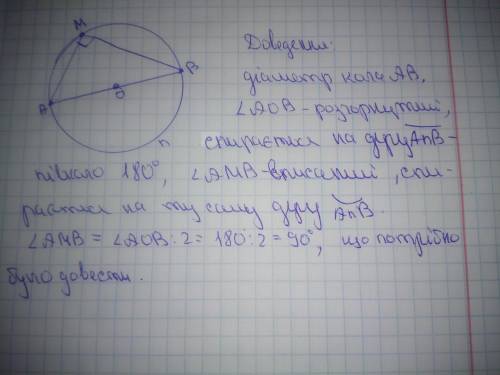 M
Доведення:
діаметр кола AB.
B
A
O
∠AOB - розгорнутий,
n
спирається на дугу AnB -
півколо 180°, ∠AMB - вписаний, спи-
рається на ту саму дугу AnB.
∠AMB = ∠AOB : 2 = 180° : 2 = 90°, що потрібно
було довести.